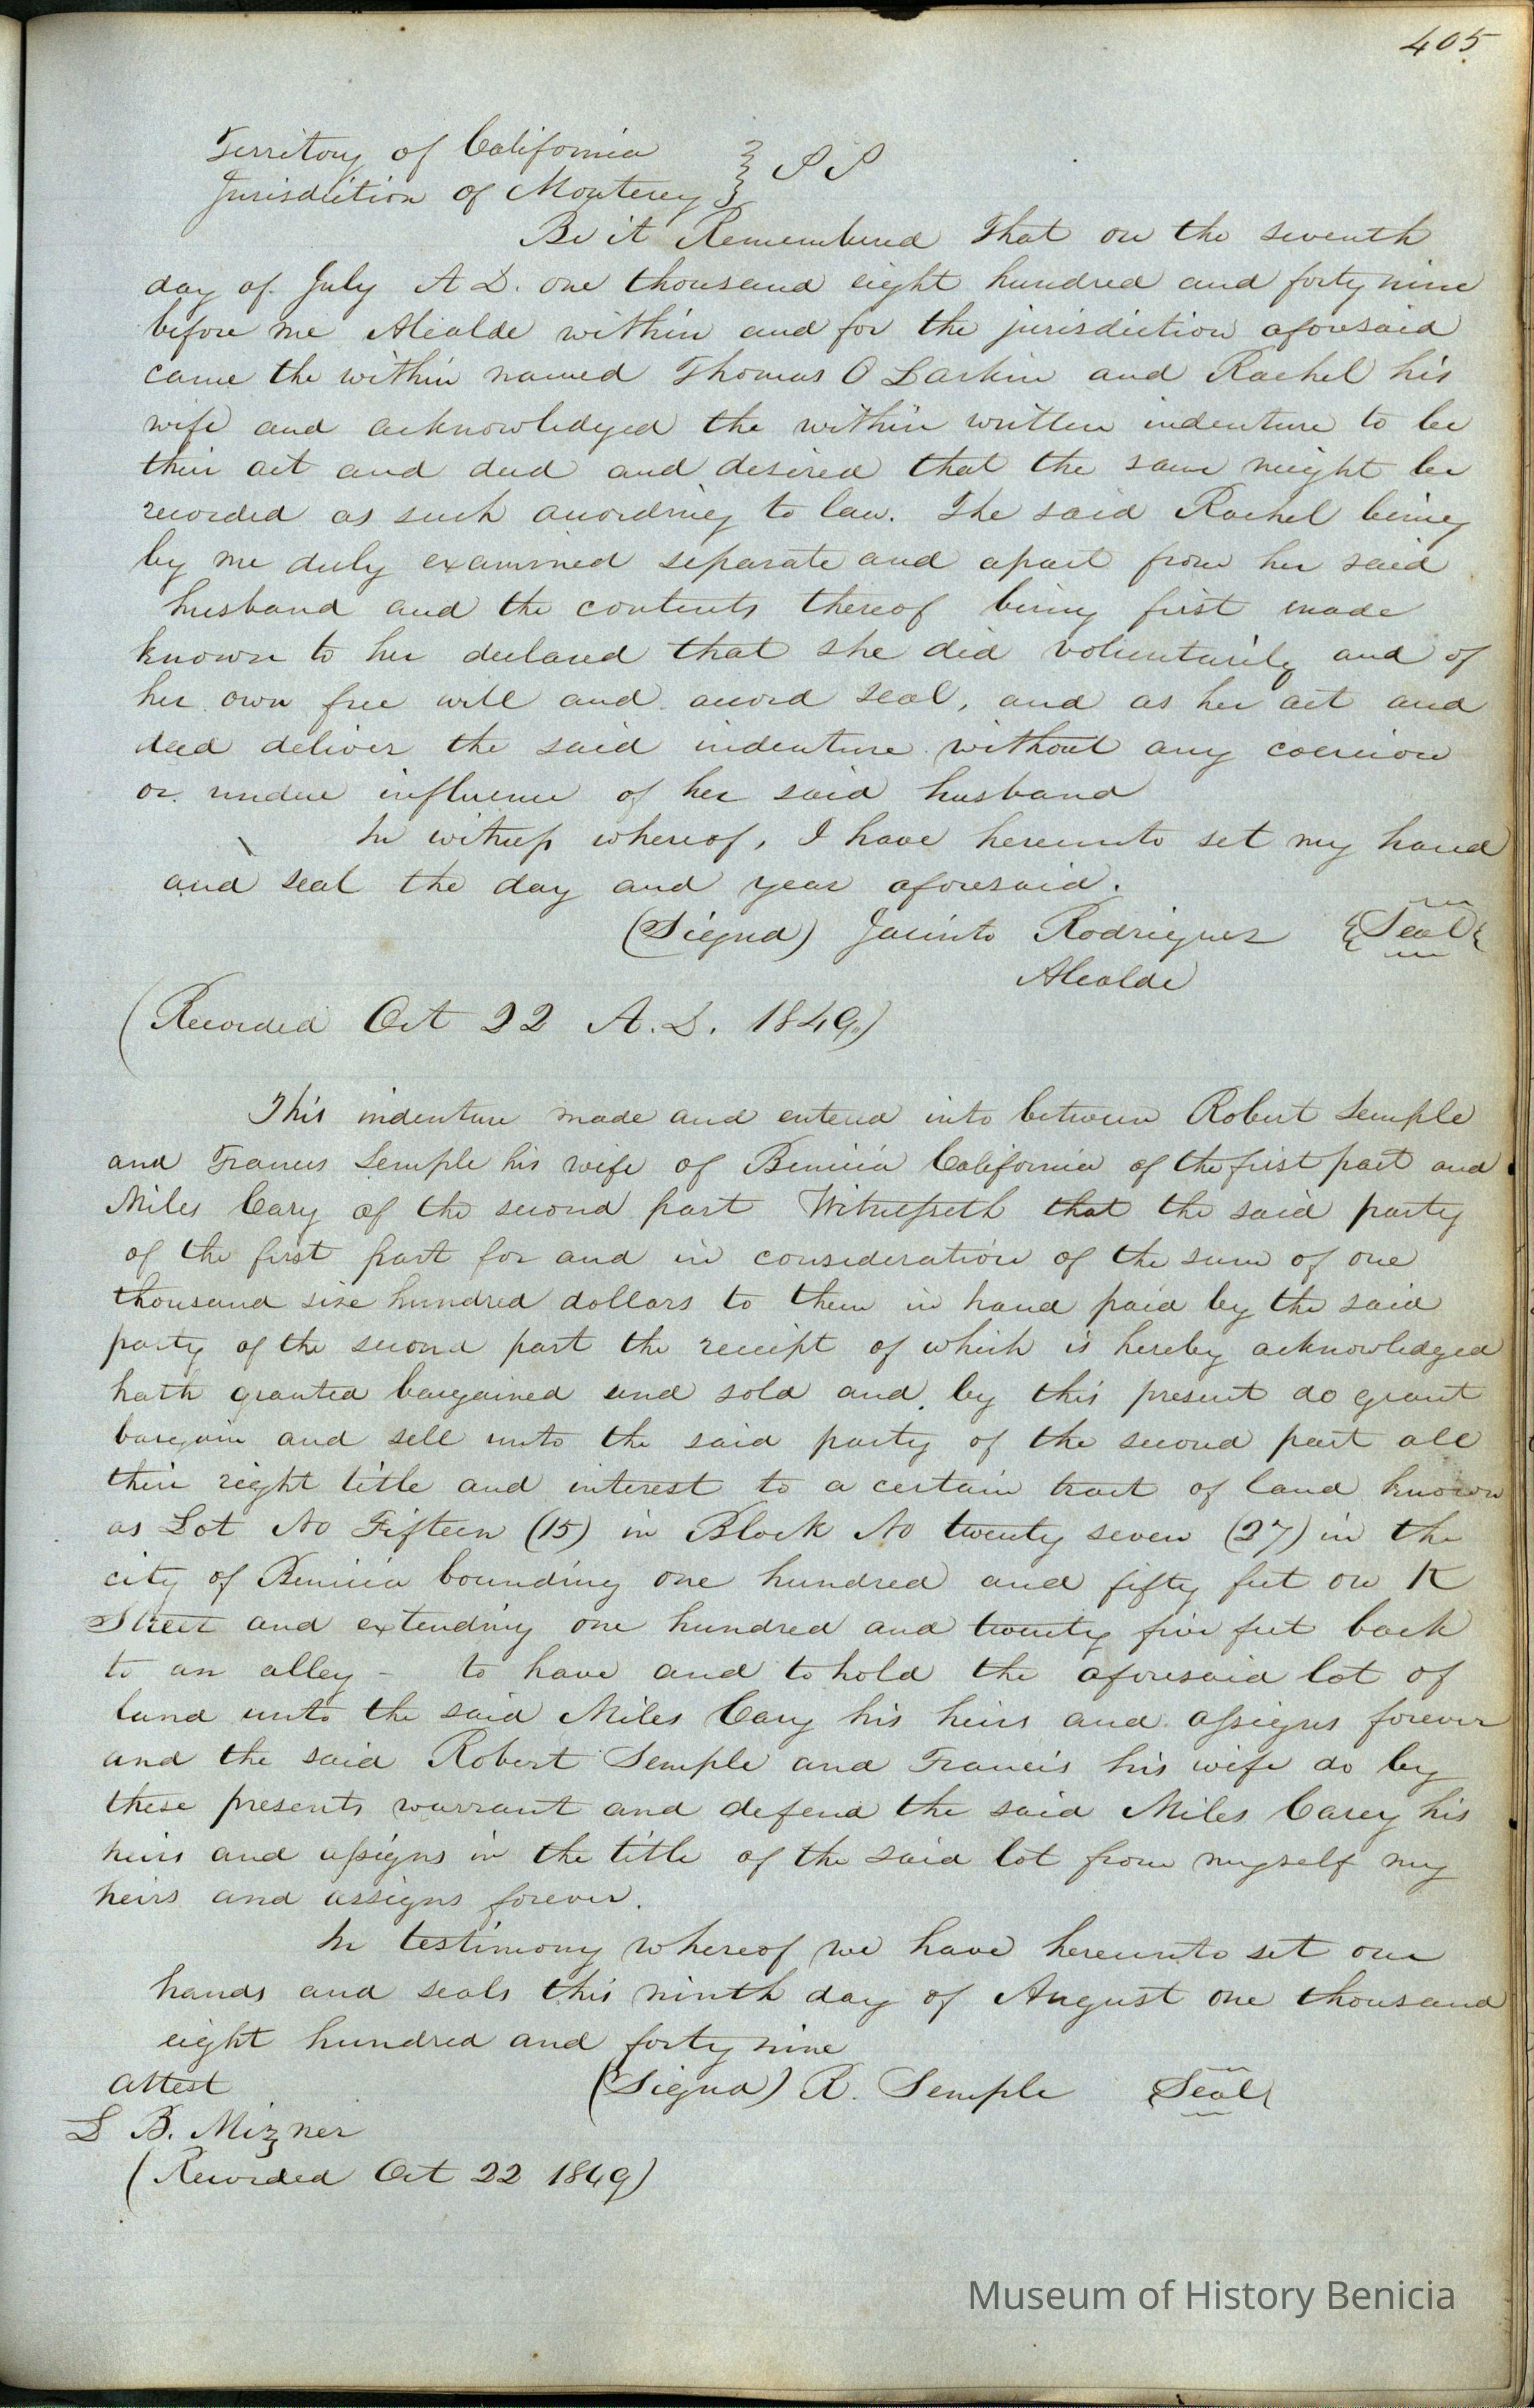 405
Territory of California } SS
Jurisdiction of Monterey }
Be it Remembered That on the seventh
day of July A D. one thousand eight hundred and forty nine
before me Alcalde within and for the jurisdiction aforesaid
came the within named Thomas O Larkin and Rachel his
wife and acknowledged the within written indenture to be
their act and deed and desired that the same might be
recorded as such according to law. The said Rachel being
by me duly examined separate and apart from her said
husband and the contents thereof being first made
known to her declared that she did voluntarily and of
her own free will and accord seal, and as her act and
deed deliver the said indenture without any coercion
or undue influence of her said husband
In witness whereof, I have hereunto set my hand
and seal the day and year aforesaid.
(Signed) Jacinto Rodriguez {Seal}
Alcalde
(Recorded Oct 22 A.D. 1849.)
This indenture made and entered into between Robert Semple
and Frances Semple his wife of Benicia California of the first part and
Miles Cary of the second part Witnesseth that the said party
of the first part for and in consideration of the sum of one
thousand six hundred dollars to them in hand paid by the said
party of the second part the receipt of which is hereby acknowledged
hath granted bargained and sold and by this present do grant
bargain and sell unto the said party of the second part all
their right title and interest to a certain tract of land known
as Lot No Fifteen (15) in Block No twenty seven (27) in the
city of Benicia bounding one hundred and fifty feet on K
Street and extending one hundred and twenty five feet back
to an alley - to have and to hold the aforesaid lot of
land unto the said Miles Cary his heirs and assigns forever
and the said Robert Semple and Francis his wife do by
these presents warrant and defend the said Miles Carey his
heirs and assigns in the title of the said lot from myself my
heirs and assigns forever.
In testimony whereof we have hereunto set our
hands and seals this ninth day of August one thousand
eight hundred and forty nine
attest (Signed) R. Semple {Seal}
L B. Mizner
(Recorded Oct 22 1849)
Museum of History Benicia